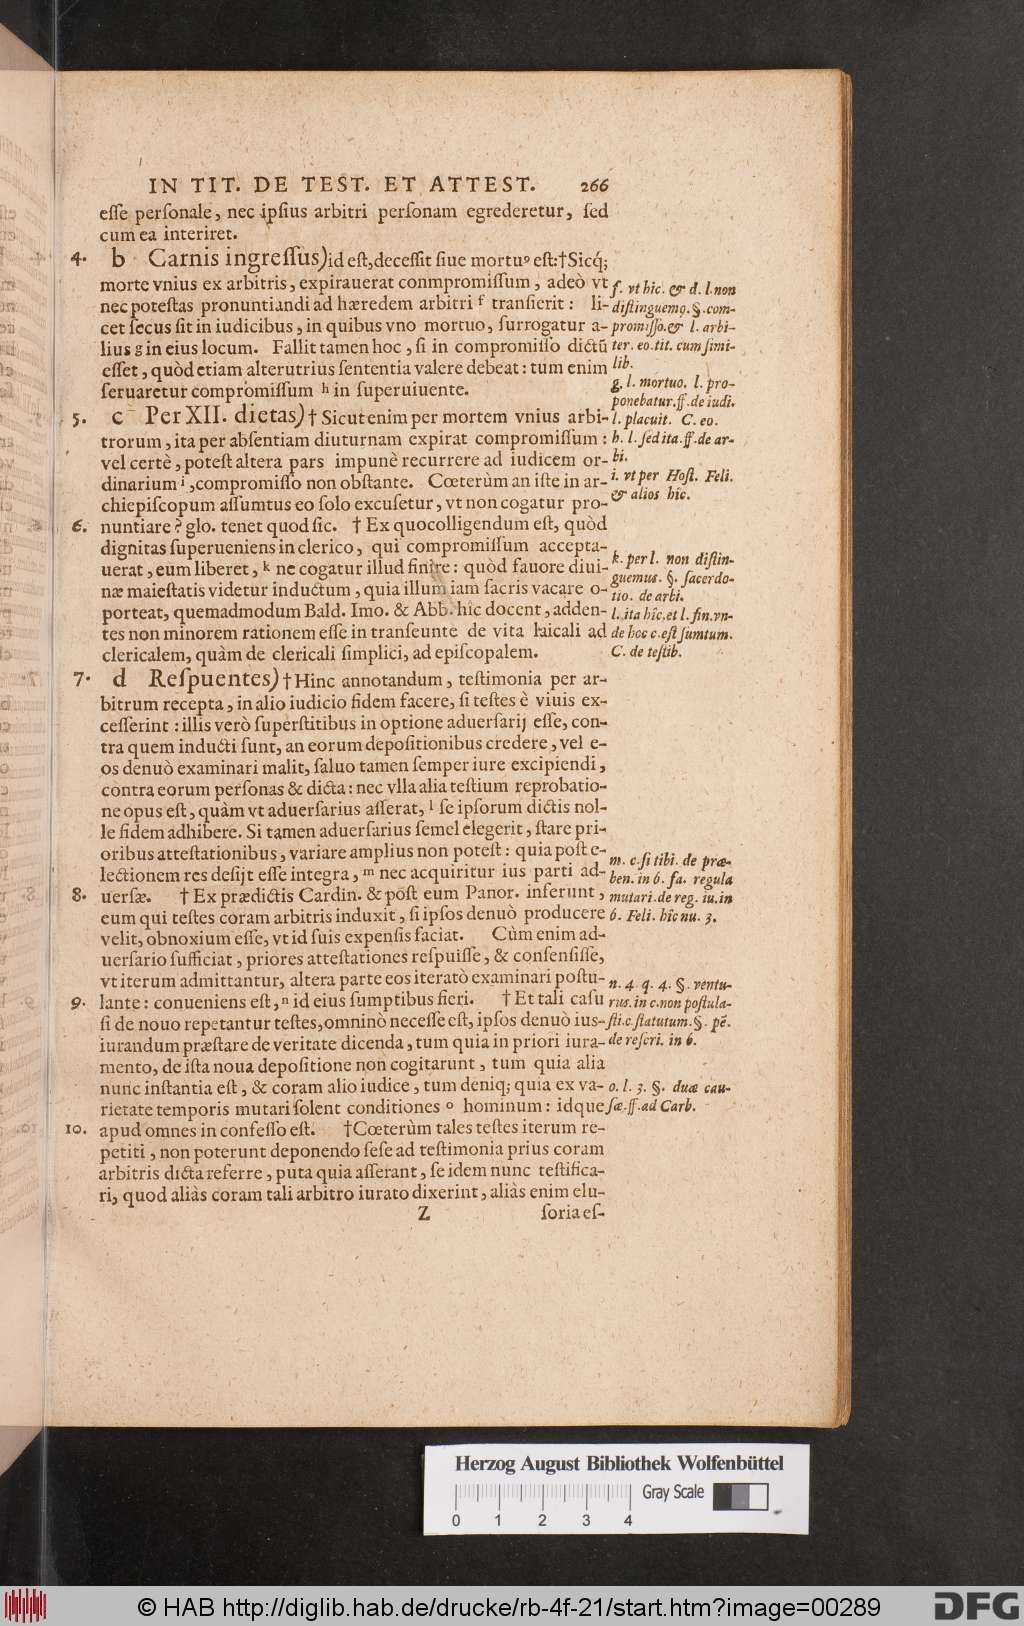 IN TIT. DE TEST. ET ATTEST. 266
eſſe perſonale, nec ipſius arbitri perſonam egrederetur, ſed
cum ea interiret.
4. b Carnis ingreſſus) id eſt, deceſſit ſiue mortuꝰ eſt: † Sicq́;
morte vnius ex arbitris, expirauerat conmpromiſſum, adeò vt
nec poteſtas pronuntiandi ad hæredem arbitri f tranſierit: li-
cet ſecus ſit in iudicibus, in quibus vno mortuo, ſurrogatur a-
lius g in eius locum. Fallit tamen hoc, ſi in compromiſſo dictũ
eſſet, quòd etiam alterutrius ſententia valere debeat: tum enim
ſeruaretur compromiſſum h in ſuperuiuente.
5. c Per XII. dietas) † Sicut enim per mortem vnius arbi-
trorum, ita per abſentiam diuturnam expirat compromiſſum:
vel certè, poteſt altera pars impunè recurrere ad iudicem or-
dinarium i, compromiſſo non obſtante. Cœterùm an iſte in ar-
chiepiſcopum aſſumtus eo ſolo excuſetur, vt non cogatur pro-
6. nuntiare? glo. tenet quod ſic. † Ex quo colligendum eſt, quòd
dignitas ſuperueniens in clerico, qui compromiſſum accepta-
uerat, eum liberet, k ne cogatur illud finire: quòd fauore diui-
næ maieſtatis videtur inductum, quia illum iam ſacris vacare o-
porteat, quemadmodum Bald. Imo. & Abb. hic docent, adden-
tes non minorem rationem eſſe in tranſeunte de vita laicali ad
clericalem, quàm de clericali ſimplici, ad epiſcopalem.
7. d Reſpuentes) † Hinc annotandum, teſtimonia per ar-
bitrum recepta, in alio iudicio fidem facere, ſi teſtes è viuis ex-
ceſſerint: illis verò ſuperſtitibus in optione aduerſarij eſſe, con-
tra quem inducti ſunt, an eorum depoſitionibus credere, vel e-
os denuò examinari malit, ſaluo tamen ſemper iure excipiendi,
contra eorum perſonas & dicta: nec vlla alia teſtium reprobatio-
ne opus eſt, quàm vt aduerſarius aſſerat, l ſe ipſorum dictis nol-
le fidem adhibere. Si tamen aduerſarius ſemel elegerit, ſtare pri-
oribus atteſtationibus, variare amplius non poteſt: quia poſt e-
lectionem res deſijt eſſe integra, m nec acquiritur ius parti ad-
8. uerſæ. † Ex prædictis Cardin. & poſt eum Panor. inferunt,
eum qui teſtes coram arbitris induxit, ſi ipſos denuò producere
velit, obnoxium eſſe, vt id ſuis expenſis faciat. Cùm enim ad-
uerſario ſufficiat, priores atteſtationes reſpuiſſe, & conſenſiſſe,
vt iterum admittantur, altera parte eos iteratò examinari poſtu-
9. lante: conueniens eſt, n id eius ſumptibus fieri. † Et tali caſu
ſi de nouo repetantur teſtes, omninò neceſſe eſt, ipſos denuò ius-
iurandum præſtare de veritate dicenda, tum quia in priori iura-
mento, de iſta noua depoſitione non cogitarunt, tum quia alia
nunc inſtantia eſt, & coram alio iudice, tum deniq; quia ex va-
rietate temporis mutari ſolent conditiones o hominum: idque
10. apud omnes in confeſſo eſt. † Cœterùm tales teſtes iterum re-
petiti, non poterunt deponendo ſeſe ad teſtimonia prius coram
arbitris dicta referre, puta quia aſſerant, ſe idem nunc teſtifica-
ri, quod aliàs coram tali arbitro iurato dixerint, aliàs enim elu-
Z ſoria eſ-
f. vt hic. & d. l. non
diſtinguemꝰ. §. com-
promiſſo. & l. arbi-
ter. eo. tit. cum ſimi-
lib.
g. l. mortuo. l. pro-
ponebatur. ff. de iudi.
l. placuit. C. eo.
h. l. ſed ita. ff. de ar-
bi.
i. vt per Hoſt. Feli.
& alios hîc.
k. per l. non diſtin-
guemus. §. ſacerdo-
tio. de arbi.
l. ita hîc, et l. fin. vn-
de hoc c. eſt ſumtum.
C. de teſtib.
m. c. ſi tibi. de præ-
ben. in 6. fa. regula
mutari. de reg. iu. in
6. Feli. hîc nu. 3.
n. 4 q. 4. §. ventu-
rus. in c. non poſtula-
ſti. c. ſtatutum. §. pẽ.
de reſcri. in 6.
o. l. 3. §. duæ cau-
ſæ. ff. ad Carb.
Herzog August Bibliothek Wolfenbüttel
Gray Scale
0 1 2 3 4
© HAB http://diglib.hab.de/drucke/rb-4f-21/start.htm?image=00289
DFG